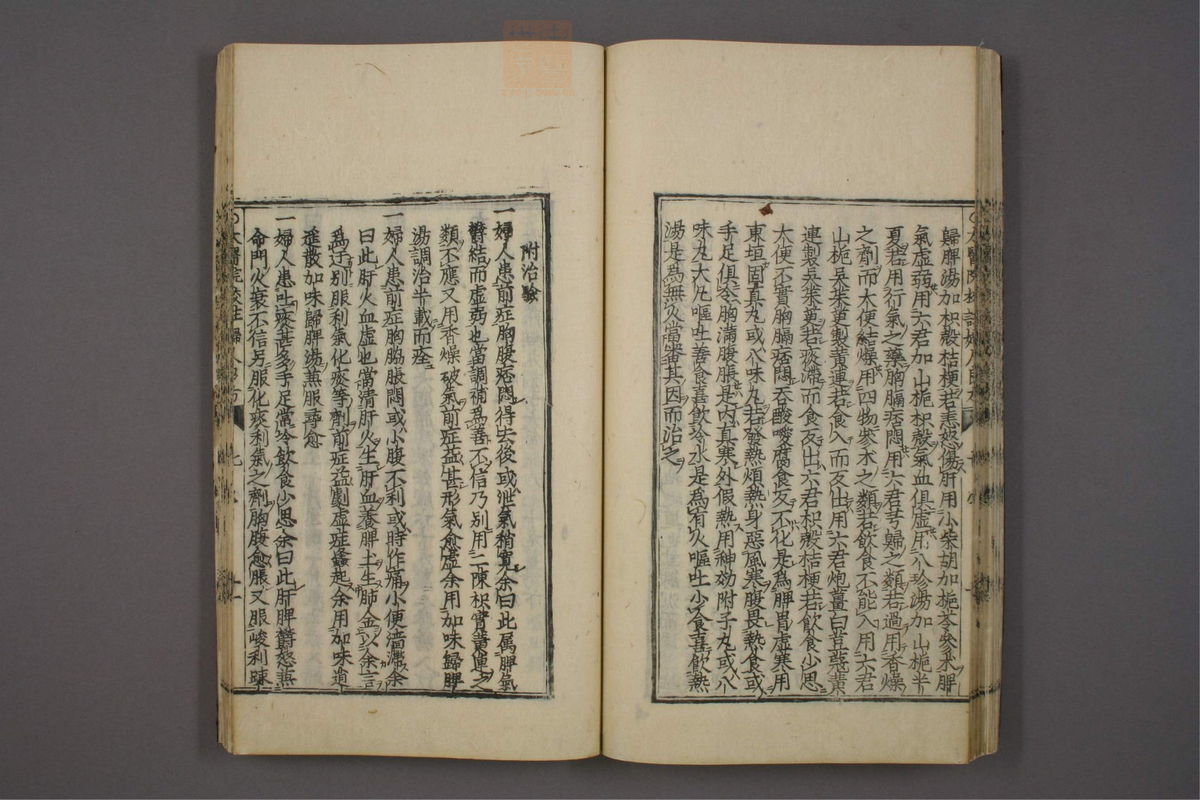 歸脾湯加枳殼桔梗若恚怒傷肝用小柴胡加梔苓參朮脾
氣虛弱用六君加山梔枳殼氣血俱虛用八珍湯加山梔半
夏若用行氣之藥胸膈痞悶用六君芎歸之類若過用香燥
之劑而大便結燥用四物參朮之類若飲食不能入用六君
山梔吳茱萸製黃連若食入而反出用六君炮薑白荳蔻黃
連製吳茱萸若痰滯而食反出六君枳殼桔梗若飲食少思
大便不實胸膈痞悶吞酸噯腐食反不化是為脾胃虛寒用
東垣固真丸或八味丸若發熱煩熱身惡風寒腹畏熱食或
手足俱冷胸滿腹脹是内真寒外假熱用神効附子丸或八
味丸大凡嘔吐善食喜飲冷水是為有火嘔吐少食喜飲熱
湯是為無火當審其因而治之
附治驗
一婦人患前症胸腹痞悶得去後或泄氣稍寬余曰此属脾氣
欝結而虛弱也當調補為善不信乃別用二陳枳實黃連之
類不應又用香燥破氣前症益甚形氣愈虛余用加味歸脾
湯調治半載而痊
一婦人患前症胸脇脹悶或小腹不利或時作痛小便濇滯余
曰此肝火血虛也當清肝火生肝血養脾土生肺金以余言
為迂別服利氣化痰等劑前症益劇虛症蠭起余用加味逍
遙散加味歸脾湯兼服尋愈
一婦人患吐痰甚多手足常冷飲食少思余曰此肝脾欝怒兼
命門火衰不信另服化痰利氣之劑胸腹愈脹又服峻利踈